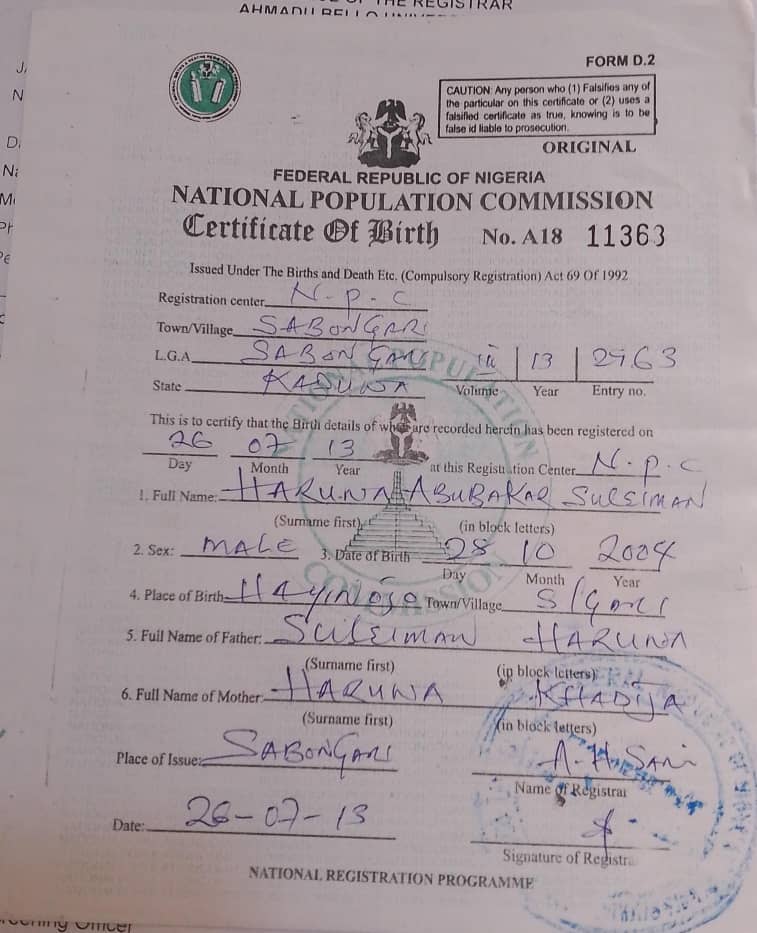 THE REGISTRAR
AHMADU BELLO
FORM D.2
CAUTION: Any person who (1) Falsifies any of
the particular on this certificate or (2) uses a
falsified certificate as true, knowing is to be
false id liable to prosecution.
ORIGINAL
FEDERAL REPUBLIC OF NIGERIA
NATIONAL POPULATION COMMISSION
Certificate Of Birth No. A18 11363
Issued Under The Births and Death Etc. (Compulsory Registration) Act 69 Of 1992
Registration center N.P.C
Town/Village SABONGARI
L.G.A SABON GARI iii 13 2963
State KADUNA Volume Year Entry no.
This is to certify that the Birth details of whom are recorded herein has been registered on
26 07 13
Day Month Year at this Registration Center N.P.C
1. Full Name: HARUNA ABUBAKAR SULEIMAN
(Surname first) (in block letters)
2. Sex: MALE 3. Date of Birth 28 10 2004
Day Month Year
4. Place of Birth HAYINOJO Town/Village S/GARI
5. Full Name of Father: SULEIMAN HARUNA
(Surname first) (in block letters)
6. Full Name of Mother: HARUNA KHADIJA
(Surname first) (in block letters)
Place of Issue: SABONGARI A.H. SANI
Name of Registrar
Date: 26-07-13
Signature of Registrar
NATIONAL REGISTRATION PROGRAMME
NATIONAL POPULATION
COMMISSION
Officer